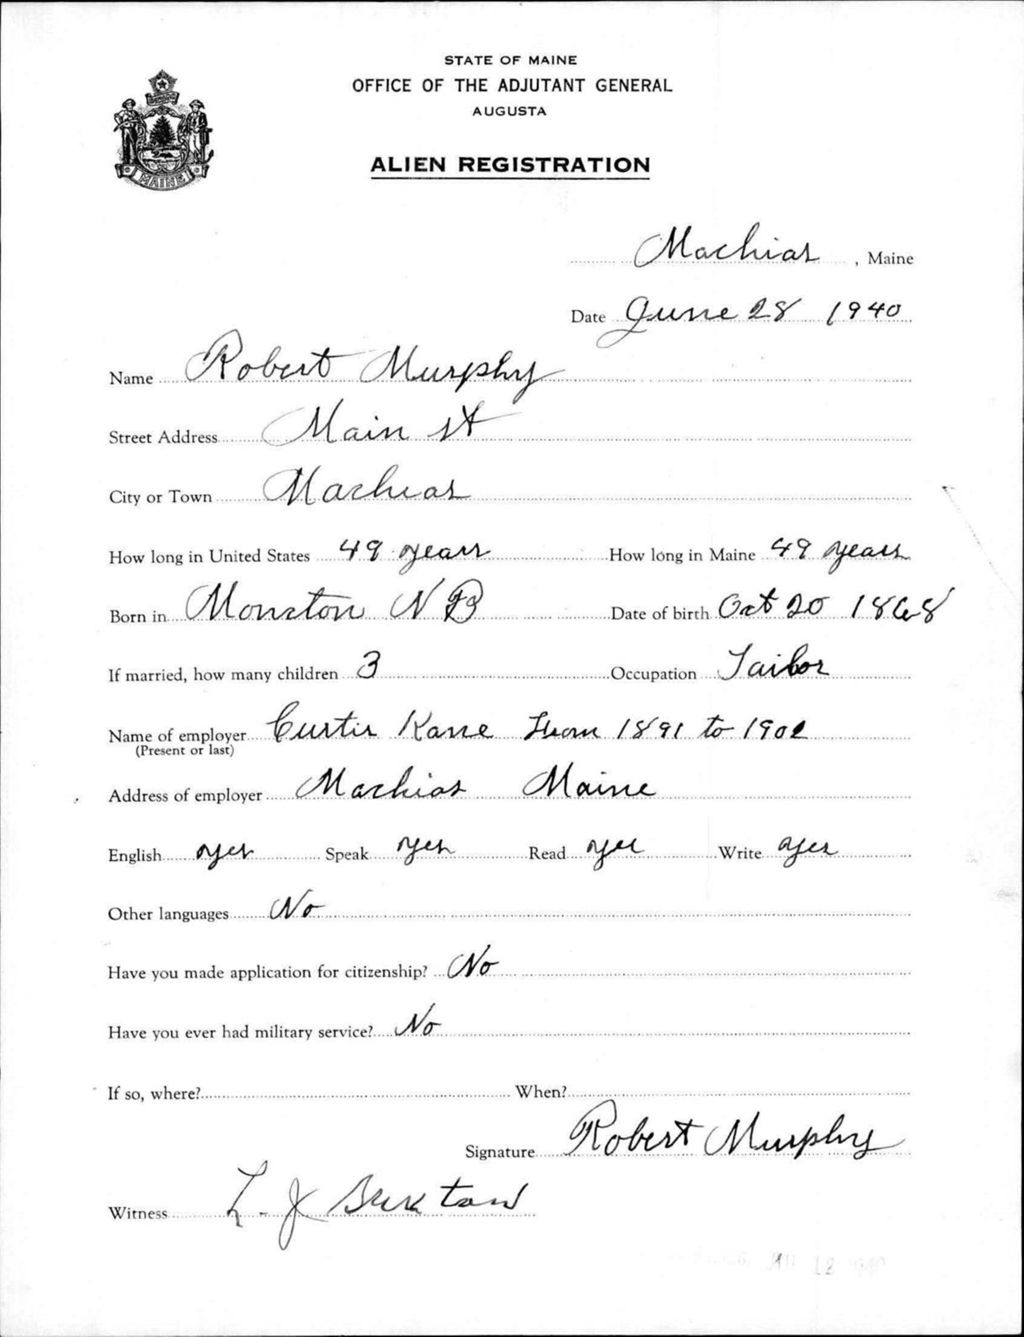 STATE OF MAINE
OFFICE OF THE ADJUTANT GENERAL
AUGUSTA
ALIEN REGISTRATION
MAINE
Machias, Maine
Date June 28 1940
Name Robert Murphy
Street Address Main St
City or Town Machias
How long in United States 49 years How long in Maine 49 years
Born in Moncton N B Date of birth Oct 20 1868
If married, how many children 3 Occupation Tailor
Name of employer Curtis Kane From 1891 to 1902
(Present or last)
Address of employer Machias Maine
English yes Speak yes Read yes Write yes
Other languages No
Have you made application for citizenship? No
Have you ever had military service? No
If so, where? When?
Signature Robert Murphy
Witness L. J.